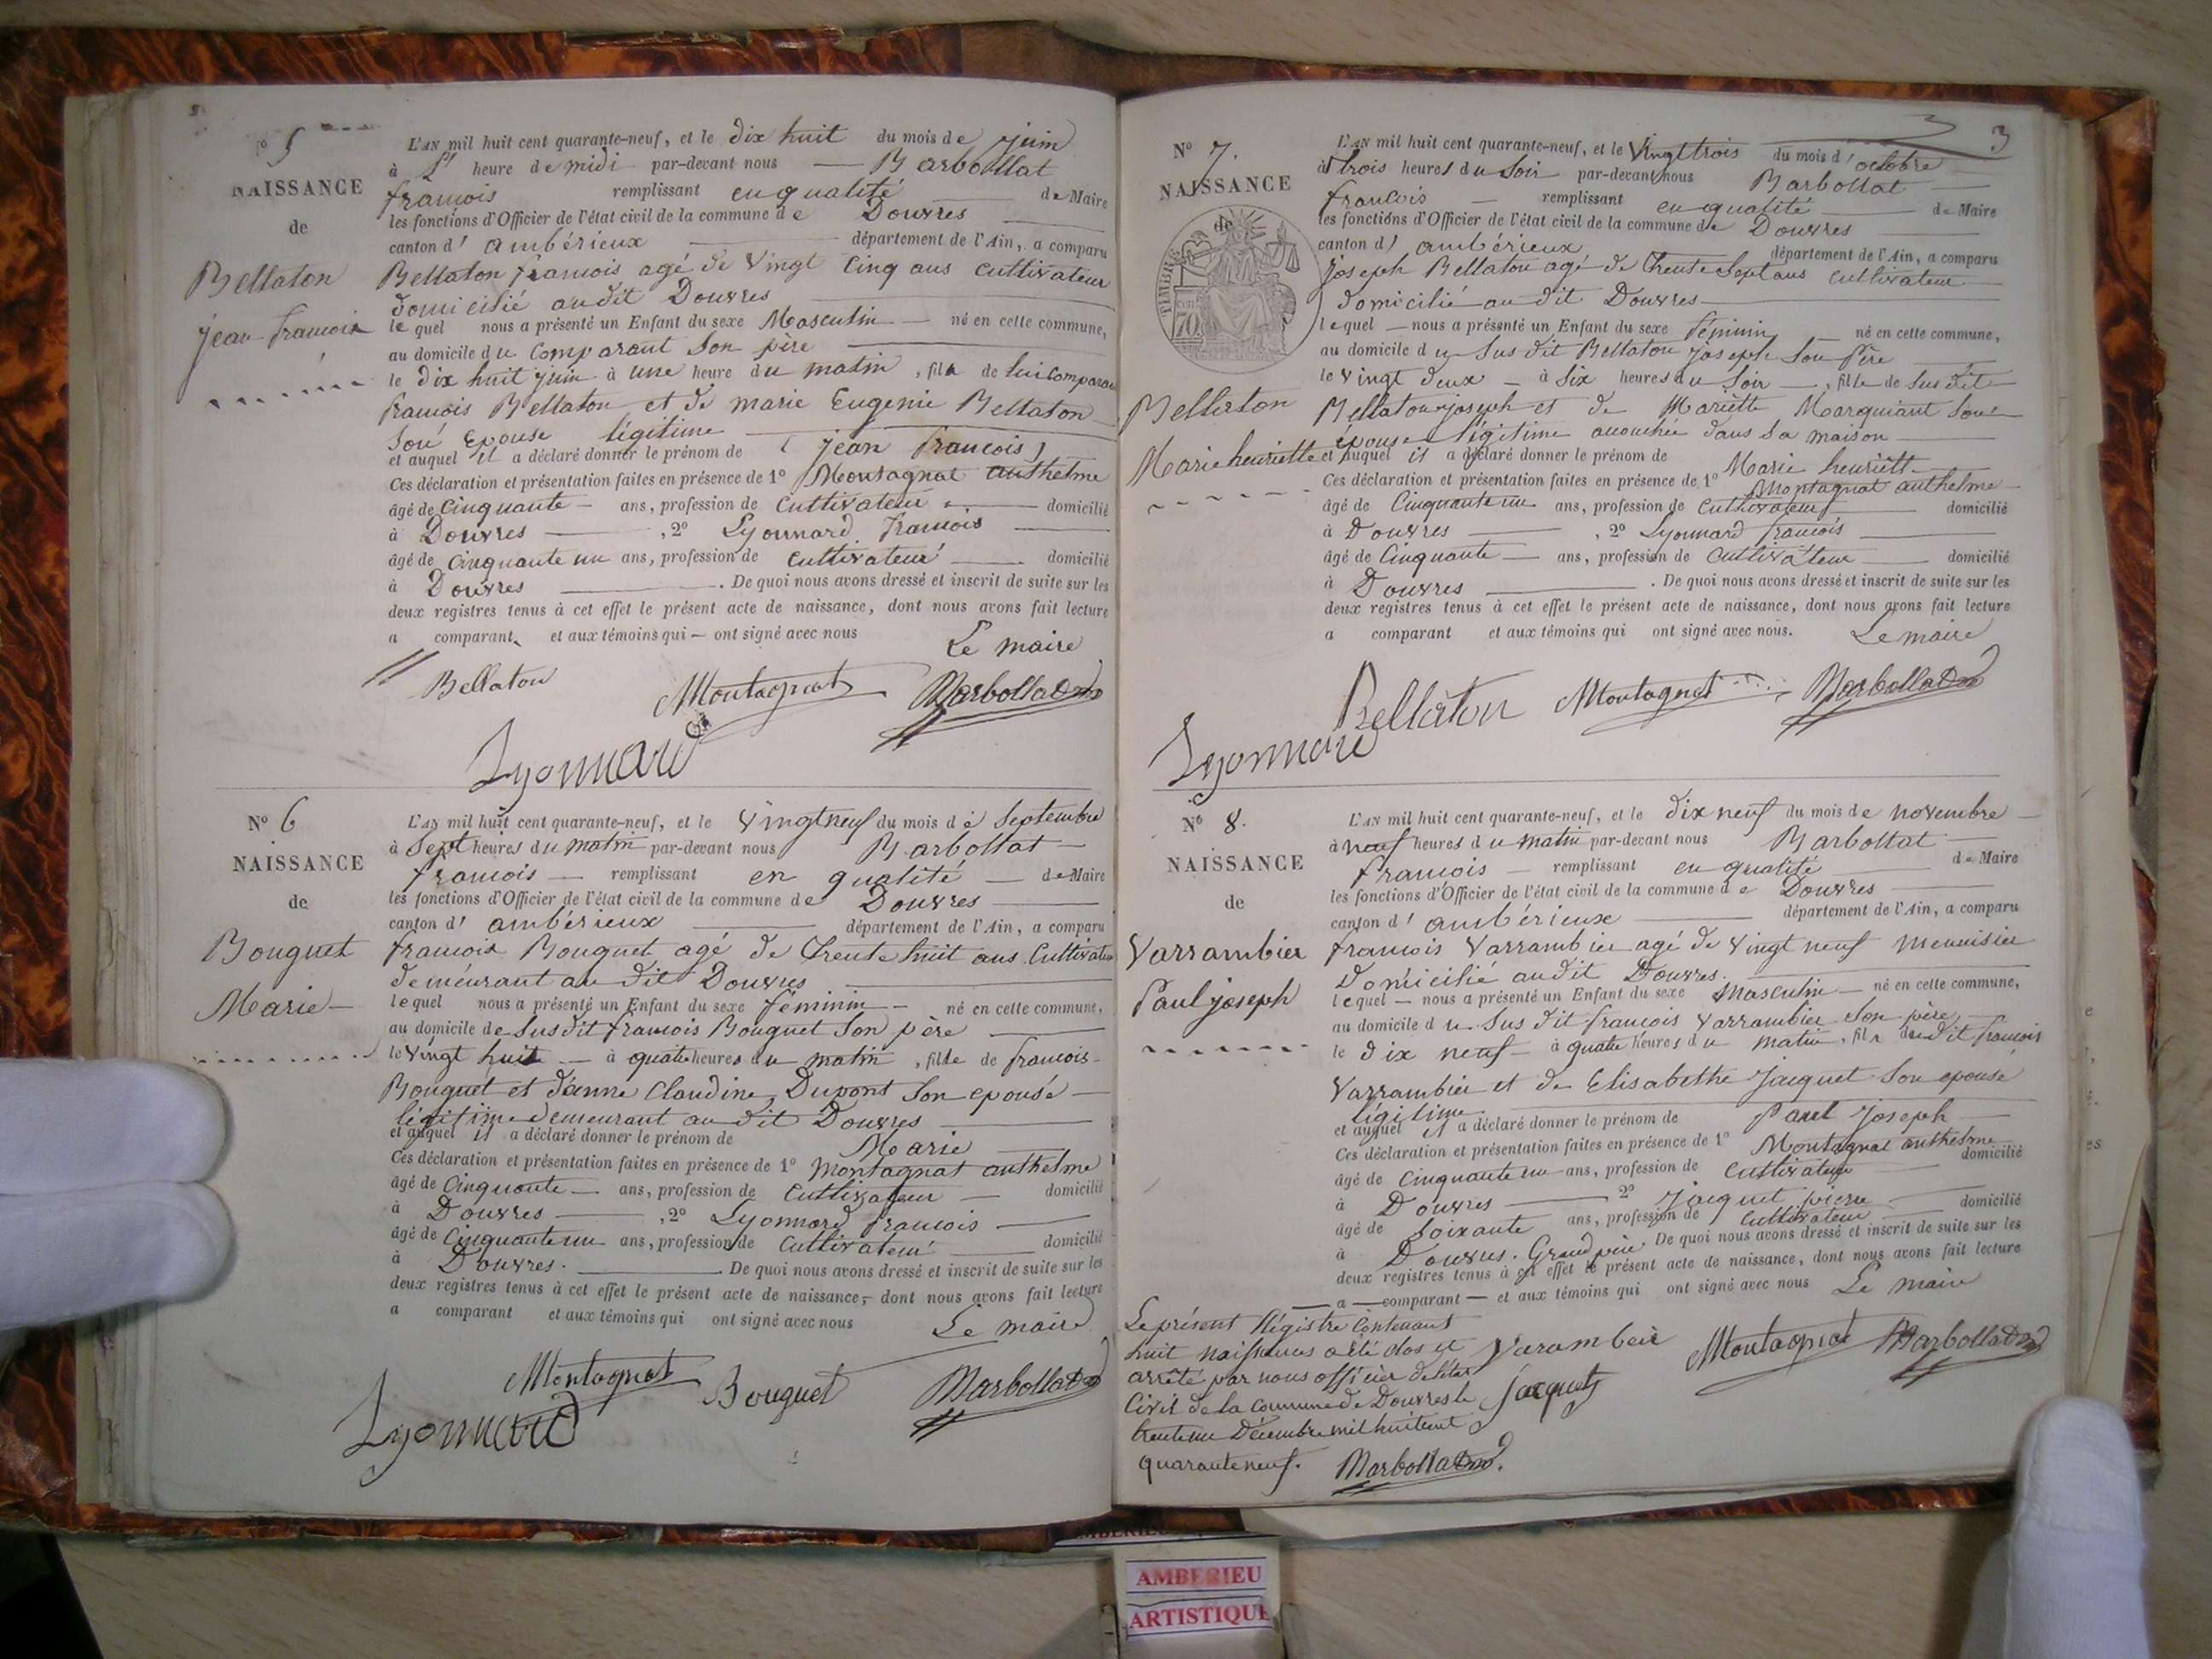 No 5
NAISSANCE
de
Bellaton
jean francois
L'AN mil huit cent quarante-neuf, et le dix huit du mois de juin
à L' heure de midi par-devant nous Barbollat
francois remplissant en qualité de Maire
les fonctions d'Officier de l'état civil de la commune de Douvres
canton d' ambérieux département de l'Ain, a comparu
Bellaton francois agé de vingt cinq ans cultivateur
domicilié audit Douvres
lequel nous a présenté un Enfant du sexe Masculin né en cette commune,
au domicile du comparant son père
le dix huit juin à une heure du matin, fils de lui comparant
francois Bellaton et de marie Eugenie Bellaton
son épouse légitime
et auquel il a déclaré donner le prénom de (jean francois)
Ces déclaration et présentation faites en présence de 1º Montagnat anthelme
âgé de cinquante ans, profession de cultivateur domicilié
à Douvres, 2º Lyonnard francois
âgé de cinquante un ans, profession de cultivateur domicilié
à Douvres. De quoi nous avons dressé et inscrit de suite sur les
deux registres tenus à cet effet le présent acte de naissance, dont nous avons fait lecture
a comparant et aux témoins qui – ont signé avec nous
Le maire
Bellaton Montagnat Barbollat
Lyonnard
Nº 6
NAISSANCE
de
Bouguet
Marie
L'AN mil huit cent quarante-neuf, et le vingtneuf du mois de Septembre
à Sept heures du matin par-devant nous Barbollat
francois remplissant en qualité de Maire
les fonctions d'Officier de l'état civil de la commune de Douvres
canton d' ambérieux département de l'Ain, a comparu
francois Bouguet agé de trente huit ans cultivateur
demeurant au dit Douvres
lequel nous a présenté un Enfant du sexe féminin né en cette commune,
au domicile de susdit francois Bouguet son père
le vingt huit à quatre heures du matin, fille de francois
Bouguet et d'anne Claudine Dupont son epouse
légitime demeurant au dit Douvres
et auquel il a déclaré donner le prénom de Marie
Ces déclaration et présentation faites en présence de 1º Montagnat anthelme
âgé de Cinquante ans, profession de cultivateur domicilié
à Douvres, 2º Lyonnard francois
âgé de Cinquante un ans, profession de cultivateur domicilié
à Douvres. De quoi nous avons dressé et inscrit de suite sur les
deux registres tenus à cet effet le présent acte de naissance, dont nous avons fait lecture
a comparant et aux témoins qui ont signé avec nous
Le maire
Montagnat Bouguet Barbollat
Lyonnard
3
Nº 7.
NAISSANCE
de
TIMBRE
70
Bellaton
Marie henriette
L'AN mil huit cent quarante-neuf, et le vingt trois du mois d'octobre
à trois heures du soir par-devant nous Barbollat
francois remplissant en qualité de Maire
les fonctions d'Officier de l'état civil de la commune de Douvres
canton d' ambérieux département de l'Ain, a comparu
joseph Bellaton agé de trente sept ans cultivateur
domicilié au dit Douvres
lequel – nous a présenté un Enfant du sexe féminin né en cette commune,
au domicile du sus dit Bellaton joseph son père
le vingt deux à six heures du soir, fille de sus dit
Bellaton joseph et de Mariette Marquiant son
épouse légitime accouchée dans sa maison
et auquel il a déclaré donner le prénom de Marie henriette
Ces déclaration et présentation faites en présence de 1º Montagnat anthelme
âgé de Cinquante un ans, profession de cultivateur domicilié
à Douvres, 2º Lyonnard francois
âgé de Cinquante ans, profession de cultivateur domicilié
à Douvres. De quoi nous avons dressé et inscrit de suite sur les
deux registres tenus à cet effet le présent acte de naissance, dont nous avons fait lecture
a comparant et aux témoins qui ont signé avec nous. Le maire
Bellaton Montagnat Barbollat
Lyonnard
Nº 8.
NAISSANCE
de
Varrambier
Paul joseph
L'AN mil huit cent quarante-neuf, et le dix neuf du mois de novembre
à neuf heures du matin par-devant nous Barbollat
francois remplissant en qualité de Maire
les fonctions d'Officier de l'état civil de la commune de Douvres
canton d' ambérieux département de l'Ain, a comparu
francois Varrambier agé de vingt neuf menuisier
domicilié audit Douvres.
lequel – nous a présenté un Enfant du sexe Masculin né en cette commune,
au domicile du sus dit francois Varrambier son père
le dix neuf à quatre heures du matin, fils dudit francois
Varrambier et de Elisabethe Jacquet son epouse
légitime
et auquel il a déclaré donner le prénom de Paul joseph
Ces déclaration et présentation faites en présence de 1º Montagnat anthelme
âgé de Cinquante un ans, profession de cultivateur domicilié
à Douvres 2º Jacquet pierre
âgé de Soixante ans, profession de cultivateur domicilié
à Douvres. Grand père. De quoi nous avons dressé et inscrit de suite sur les
deux registres tenus à cet effet le présent acte de naissance, dont nous avons fait lecture
a – comparant – et aux témoins qui ont signé avec nous Le maire
Varambier Montagnat Barbollat
jacquet
Le présent Régistre Contenant
huit naissances a été clos et
arrêté par nous officier de l'état
Civil de la Commune de Douvres le
trente un Décembre mil huit cent
quarante neuf. Barbollat
AMBERIEU
ARTISTIQUE